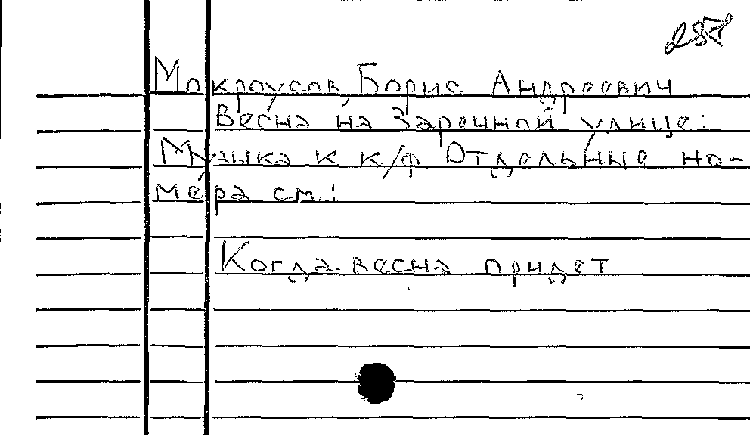 Мокроусов, Борис Андреевич
Весна на Заречной улице:
Музыка к к/ф Отдельные но-
мера см.:
Когда весна придет